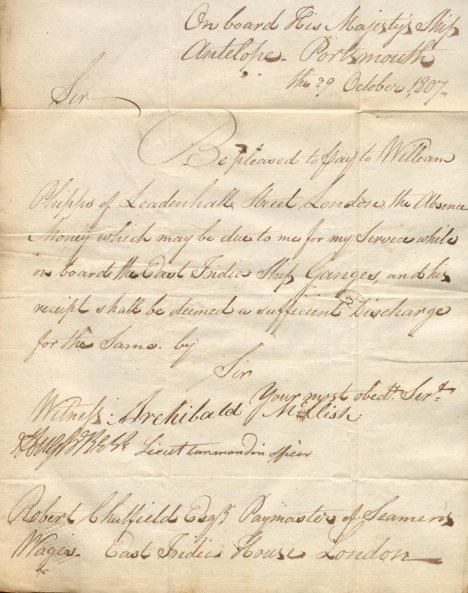 On board His Majesty's Ship
Antelope. Portsmouth
the 29 October, 1807.
Sir
Be pleased to pay to William
Phipps of Leadenhall Street London, the Absence
Money which may be due to me for my Service while
on board the East India Ship Ganges, and his
receipt shall be deemed a sufficient Discharge
for the Same. by
Sir
Your most obedt. Servt.
Witness: Archibald McLlish
Lieut Commandin officer
Robert Chatfield Esqr. Paymaster of Seamen's
Wages. East India House London